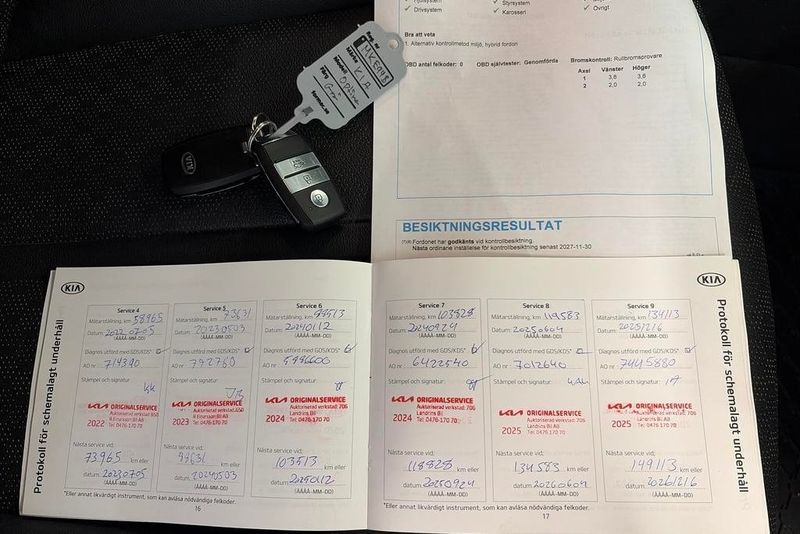 Hjulsystem
Drivsystem
Styrsystem
Karosseri
Övrigt
Bra att veta
1. Alternativ kontrollmetod miljö, hybrid fordon
OBD antal felkoder: 0 OBD självtester: Genomförda Bromskontroll: Rullbromsprovare
Axel Vänster Höger
1 3,6 3,6
2 2,0 2,0
BESIKTNINGSRESULTAT
Fordonet har godkänts vid kontrollbesiktning.
Nästa ordinarie inställelse för kontrollbesiktning senast 2027-11-30
Reg. nr
Märke KIA
Modell
Färg
KIA
KIA
Protokoll för schemalagt underhåll
Service 4
Mätarställning, km 58965
Datum 20220705
(ÅÅÅÅ-MM-DD)
Diagnos utförd med GDS/KDS*
AO nr 714390
Stämpel och signatur
KIA ORIGINALSERVICE
2022
Tel: 0476-170 70
Nästa service vid:
73965 km eller
datum 20230705
(ÅÅÅÅ-MM-DD)
Service 5
Mätarställning, km 73631
Datum 20230503
(ÅÅÅÅ-MM-DD)
Diagnos utförd med GDS/KDS*
AO nr
Stämpel och signatur
KIA ORIGINALSERVICE
2023
Tel: 0476-170 70
Nästa service vid:
km eller
datum 20240503
(ÅÅÅÅ-MM-DD)
Service 6
Mätarställning, km
Datum 20240112
(ÅÅÅÅ-MM-DD)
Diagnos utförd med GDS/KDS*
AO nr
Stämpel och signatur
KIA ORIGINALSERVICE
Auktoriserad verkstad: 706
Landrins Bil
2024 Tel: 0476-170 70
Nästa service vid:
103513 km eller
datum 20250112
(ÅÅÅÅ-MM-DD)
*Eller annat likvärdigt instrument, som kan avläsa nödvändiga felkoder.
16
Service 7
Mätarställning, km 103828
Datum 20240924
(ÅÅÅÅ-MM-DD)
Diagnos utförd med GDS/KDS*
AO nr 6422540
Stämpel och signatur
KIA ORIGINALSERVICE
Auktoriserad verkstad: 706
Landrins Bil
2024 Tel: 0476-170 70
Nästa service vid:
118828 km eller
datum 20250924
(ÅÅÅÅ-MM-DD)
Service 8
Mätarställning, km 119583
Datum 20250604
(ÅÅÅÅ-MM-DD)
Diagnos utförd med GDS/KDS*
AO nr 7012640
Stämpel och signatur
KIA ORIGINALSERVICE
Auktoriserad verkstad: 706
Landrins Bil
2025 Tel: 0476-170 70
Nästa service vid:
134583 km eller
datum 20260604
(ÅÅÅÅ-MM-DD)
Service 9
Mätarställning, km 134113
Datum 20251216
(ÅÅÅÅ-MM-DD)
Diagnos utförd med GDS/KDS*
AO nr 7445880
Stämpel och signatur
KIA ORIGINALSERVICE
Auktoriserad verkstad: 706
Landrins Bil
2025 Tel: 0476-170 70
Nästa service vid:
149113 km eller
datum 20261216
(ÅÅÅÅ-MM-DD)
*Eller annat likvärdigt instrument, som kan avläsa nödvändiga felkoder.
17
KIA
Protokoll för schemalagt underhåll